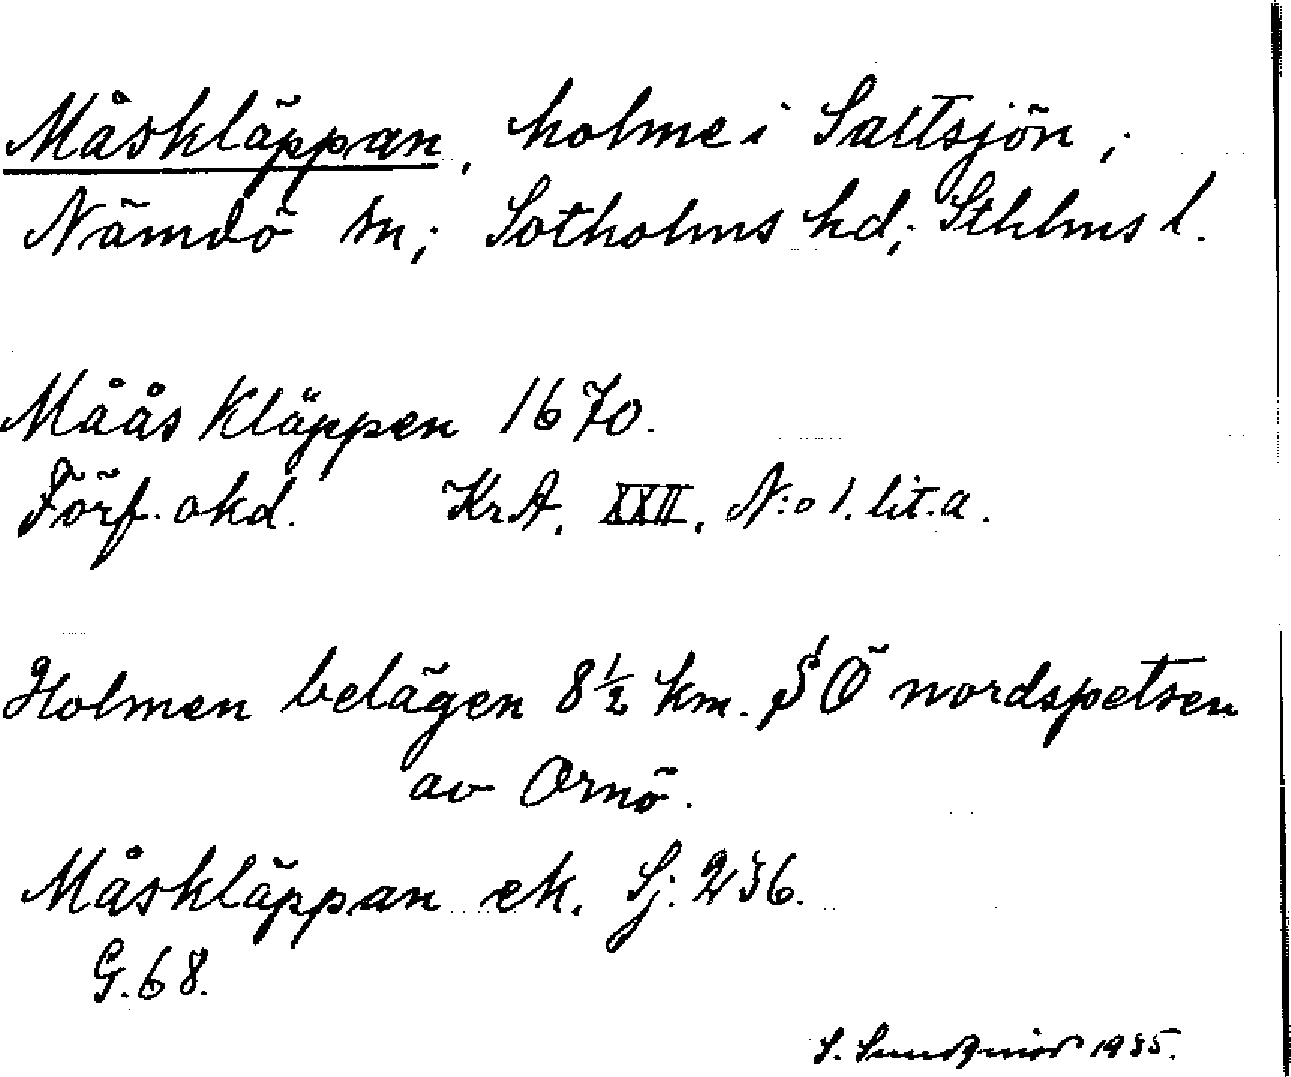 Måskläppan, holme i Saltsjön;
Nämdö sn; Sotholms hd; Sthlms l.
Måås Kläppen 1670.
Förf. okd. Kr.A. XXII. N:o 1. lit. a.
Holmen belägen 8 1/2 km. SÖ nordspetsen
av Ornö.
Måskläppan ek. Sj: 236.
G. 68.
S. Sundqvist 1935.